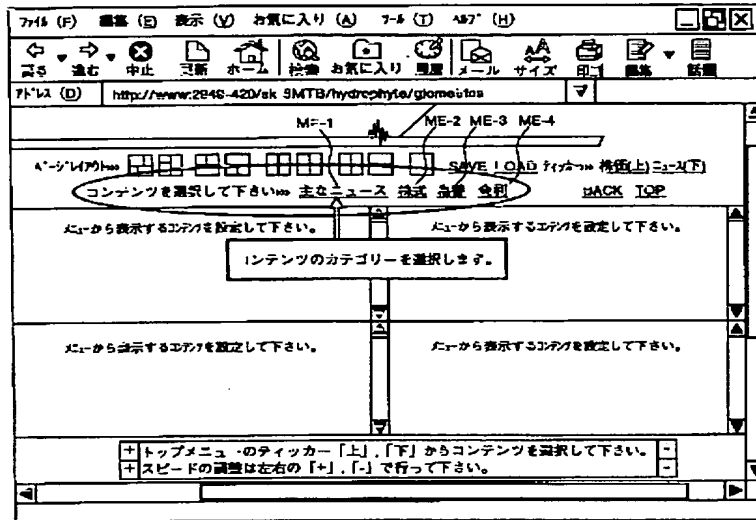 ファイル (F) 編集 (E) 表示 (V) お気に入り (A) ツール (T) ヘルプ (H)
戻る 進む 中止 更新 ホーム 検索 お気に入り 履歴 メール サイズ 印刷 編集 話題
アドレス (D) http://www.2948-420/sk_9MTB/hydrophyte/glomeutos
ME-1 ME-2 ME-3 ME-4
ページレイアウト»» SAVE LOAD ティッカー»» 株価(上) ニュース(下)
コンテンツを選択して下さい»» 主なニュース 株式 為替 金利 BACK TOP
メニューから表示するコンテンツを設定して下さい。 メニューから表示するコンテンツを設定して下さい。
コンテンツのカテゴリーを選択します。
メニューから表示するコンテンツを設定して下さい。 メニューから表示するコンテンツを設定して下さい。
+ トップメニューのティッカー「上」,「下」からコンテンツを選択して下さい。 -
+ スピードの調整は左右の「+」,「-」で行って下さい。 -